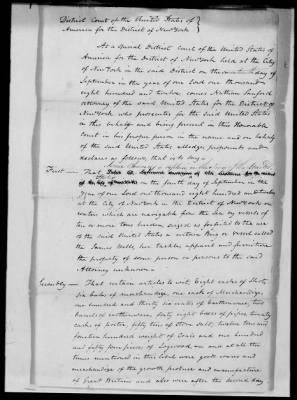 District Court of the United States of
America for the District of New York
At a Special District Court of the United States of
America for the District of New York held at the City
of New York in the said District on the day of
September in the year of our Lord one thousand
eight hundred and twelve comes Nathan Sanford
attorney of the said United States for the District of
New York who prosecutes for the said United States
in this behalf and being present in this Honorable
Court in his proper person in the name and on behalf
of the said United States alledges propounds and
declares as follows that is to say
First — That
on the fourth day of September in the
year of our Lord one thousand eight hundred
at the City of New York in the District of New York on
waters which are navigable from the sea by vessels of
ten or more tons burthen seized as forfeited to the use
of the said United States a certain Brig or vessel called
the James Wells her tackle apparel and furniture
the property of some person or persons to the said
Attorney unknown
Secondly — That certain articles to wit Eight casks of Shot
six bales of merchandize, one cask of Merchandize
one hundred and thirty six crates of earthenware, two
barrels of earthenware, forty eight boxes of pipes twenty
casks of porter, fifty tons of Stove salt, twelve tons and
fourteen hundred weight of Coals and one hundred
and fifty four pieces of Logwood, on and at all the
times mentioned in this libel were goods wares and
merchandize of the growth produce and manufacture
of Great Britain and also were after the second day